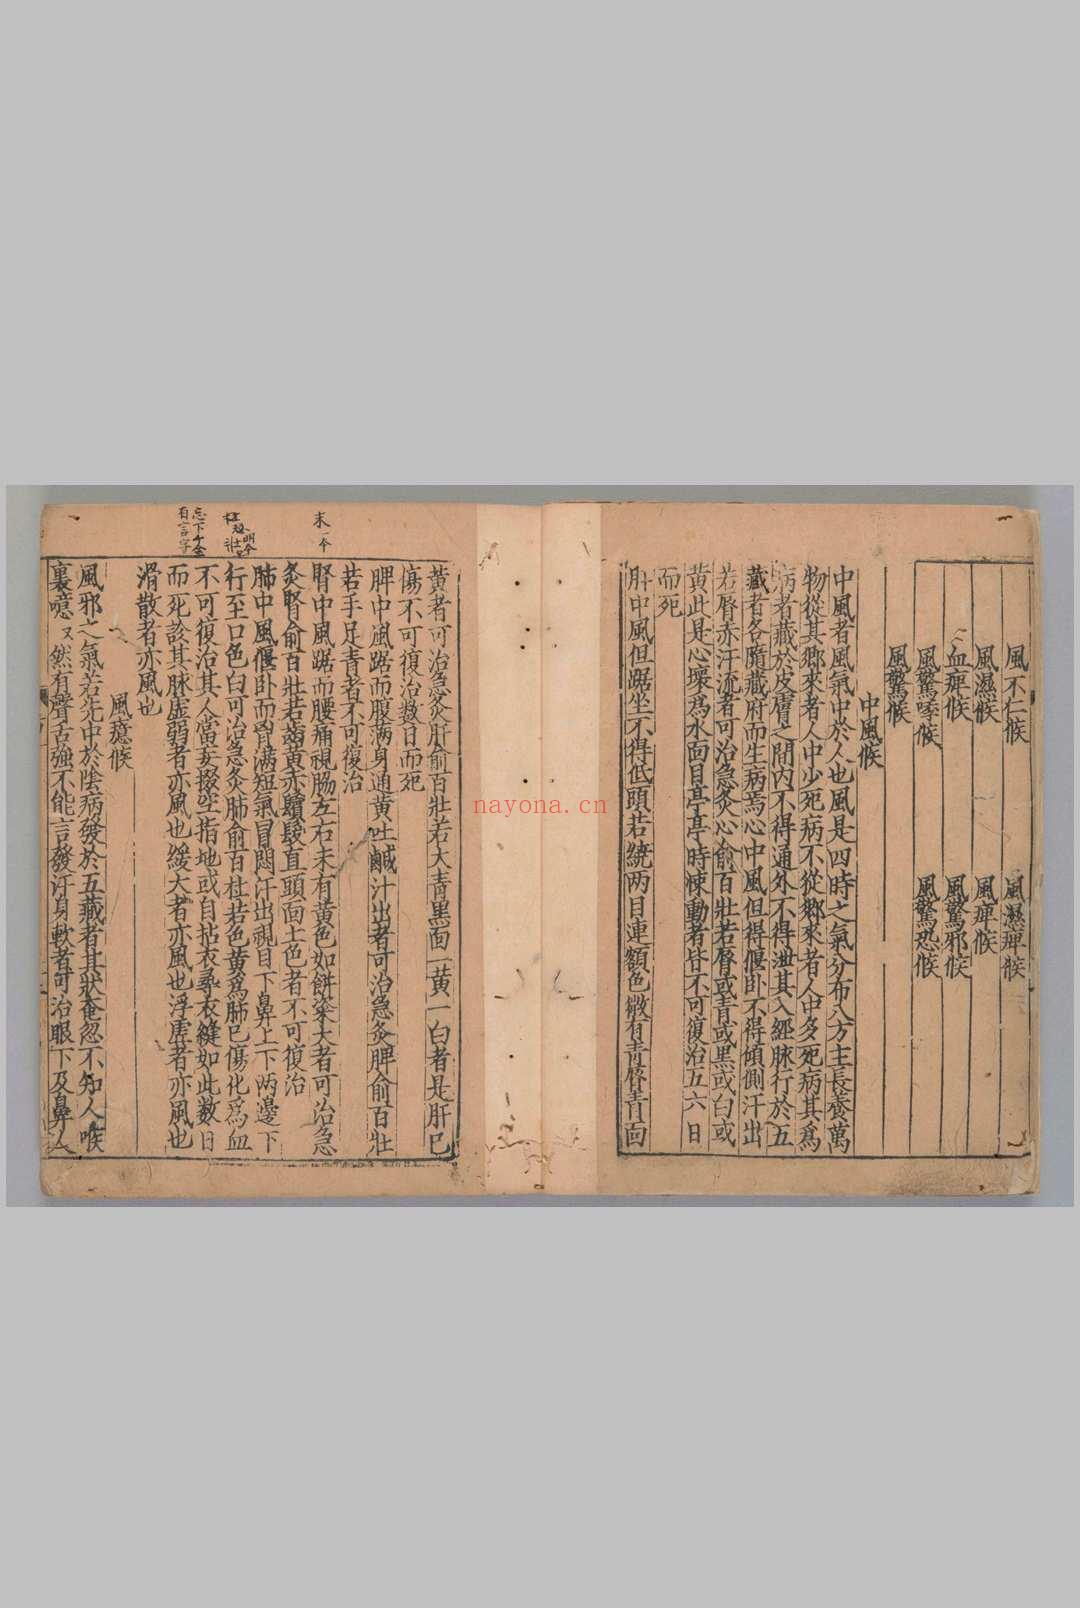 風不仁候 風濕痺候
風濕候 風痺候
血痺候 風驚邪候
風驚悸候 風驚恐候
風驚候
中風候
中風者風氣中於人也風是四時之氣分布八方主長養萬
物從其鄉來者人中少死病不從鄉來者人中多死病其爲
病者藏於皮膚之間内不得通外不得泄其入經脉行於五
藏者各隨藏府而生病焉心中風但得偃卧不得傾側汗出
若脣赤汗流者可治急灸心俞百壯若脣或青或黑或白或
黄此是心壞爲水面目亭亭時悚動者皆不可復治五六日
而死
肝中風但踞坐不得低頭若繞两目連額色微有青脣青面
黄者可治急灸肝俞百壯若大青黑面一黄一白者是肝已
傷不可復治数日而死
脾中風踞而腹满身通黄吐鹹汁出者可治急灸脾俞百壯
若手足青者不可復治
腎中風踞而腰痛視脇左右未有黄色如餅粢大者可治急
灸腎俞百壯若齒黄赤鬢髮直頭面土色者不可復治
肺中風偃卧而胷满短氣冒悶汗出視目下鼻上下两邊下
行至口色白可治急灸肺俞百壯若色黄爲肺已傷化爲血
不可復治其人當妄掇空指地或自拈衣尋衣縫如此数日
而死診其脉虚弱者亦風也緩大者亦風也浮虚者亦風也
滑散者亦風也
風癔候
風邪之氣若先中於陰病發於五藏者其狀奄忽不知人喉
裏噫又然有聲舌強不能言發汗身軟者可治眼下及鼻人
末一本
忘下本
有言字
nayona.cn